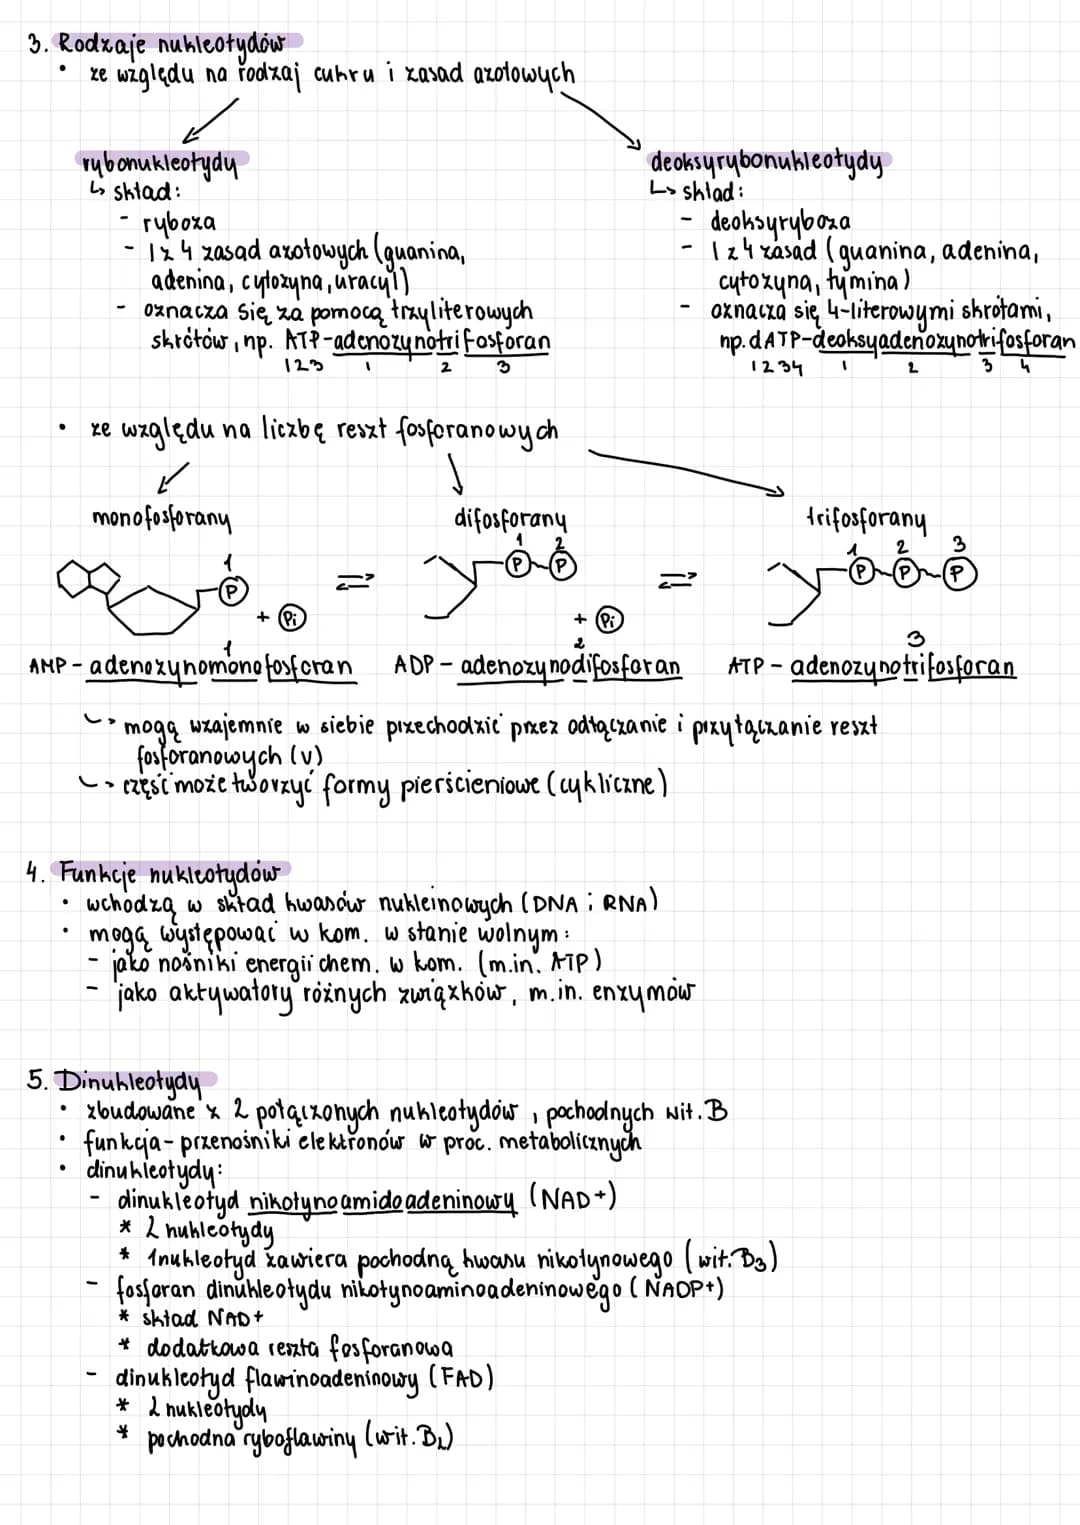 3. Rodzaje nukleotydów
• ze względu na rodzaj cukru i zasad azotowych
rybonukleotydy
↳ skład:
- ryboza
- 1 z 4 zasad azotowych (guanina,
adenina, cytozyna, uracyl)
- oznacza się za pomocą trzyliterowych
skrótów, np. ATP-adenozynotrifosforan
1 2 3 1 2 3
deoksyrybonukleotydy
↳ skład:
- deoksyryboza
- 1 z 4 zasad (guanina, adenina,
cytozyna, tymina)
- oznacza się 4-literowymi skrótami,
np. dATP-deoksyadenozynotrifosforan
1 2 3 4 1 2 3 4
• ze względu na liczbę reszt fosforanowych
monofosforany difosforany trifosforany
1 1 2 1 2 3
P ⇄ P P ⇄ P P P
+ Pi + Pi
1 2 3
AMP - adenozynomonofosforan ADP - adenozynodifosforan ATP - adenozynotrifosforan
↳ mogą wzajemnie w siebie przechodzić przez odłączanie i przyłączanie reszt
fosforanowych (v)
↳ część może tworzyć formy pierścieniowe (cykliczne)
4. Funkcje nukleotydów
• wchodzą w skład kwasów nukleinowych (DNA i RNA)
• mogą występować w kom. w stanie wolnym:
- jako nośniki energii chem. w kom. (m.in. ATP)
- jako aktywatory różnych związków, m.in. enzymów
5. Dinukleotydy
• zbudowane z 2 połączonych nukleotydów, pochodnych wit. B
• funkcja - przenośniki elektronów w proc. metabolicznych
• dinukleotydy:
- dinukleotyd nikotynoamidoadeninowy (NAD+)
* 2 nukleotydy
* 1nukleotyd zawiera pochodną kwasu nikotynowego (wit. B3)
- fosforan dinukleotydu nikotynoaminoadeninowego (NADP+)
* skład NAD+
* dodatkowa reszta fosforanowa
- dinukleotyd flawinoadeninowy (FAD)
* 2 nukleotydy
* pochodna ryboflawiny (wit. B2)